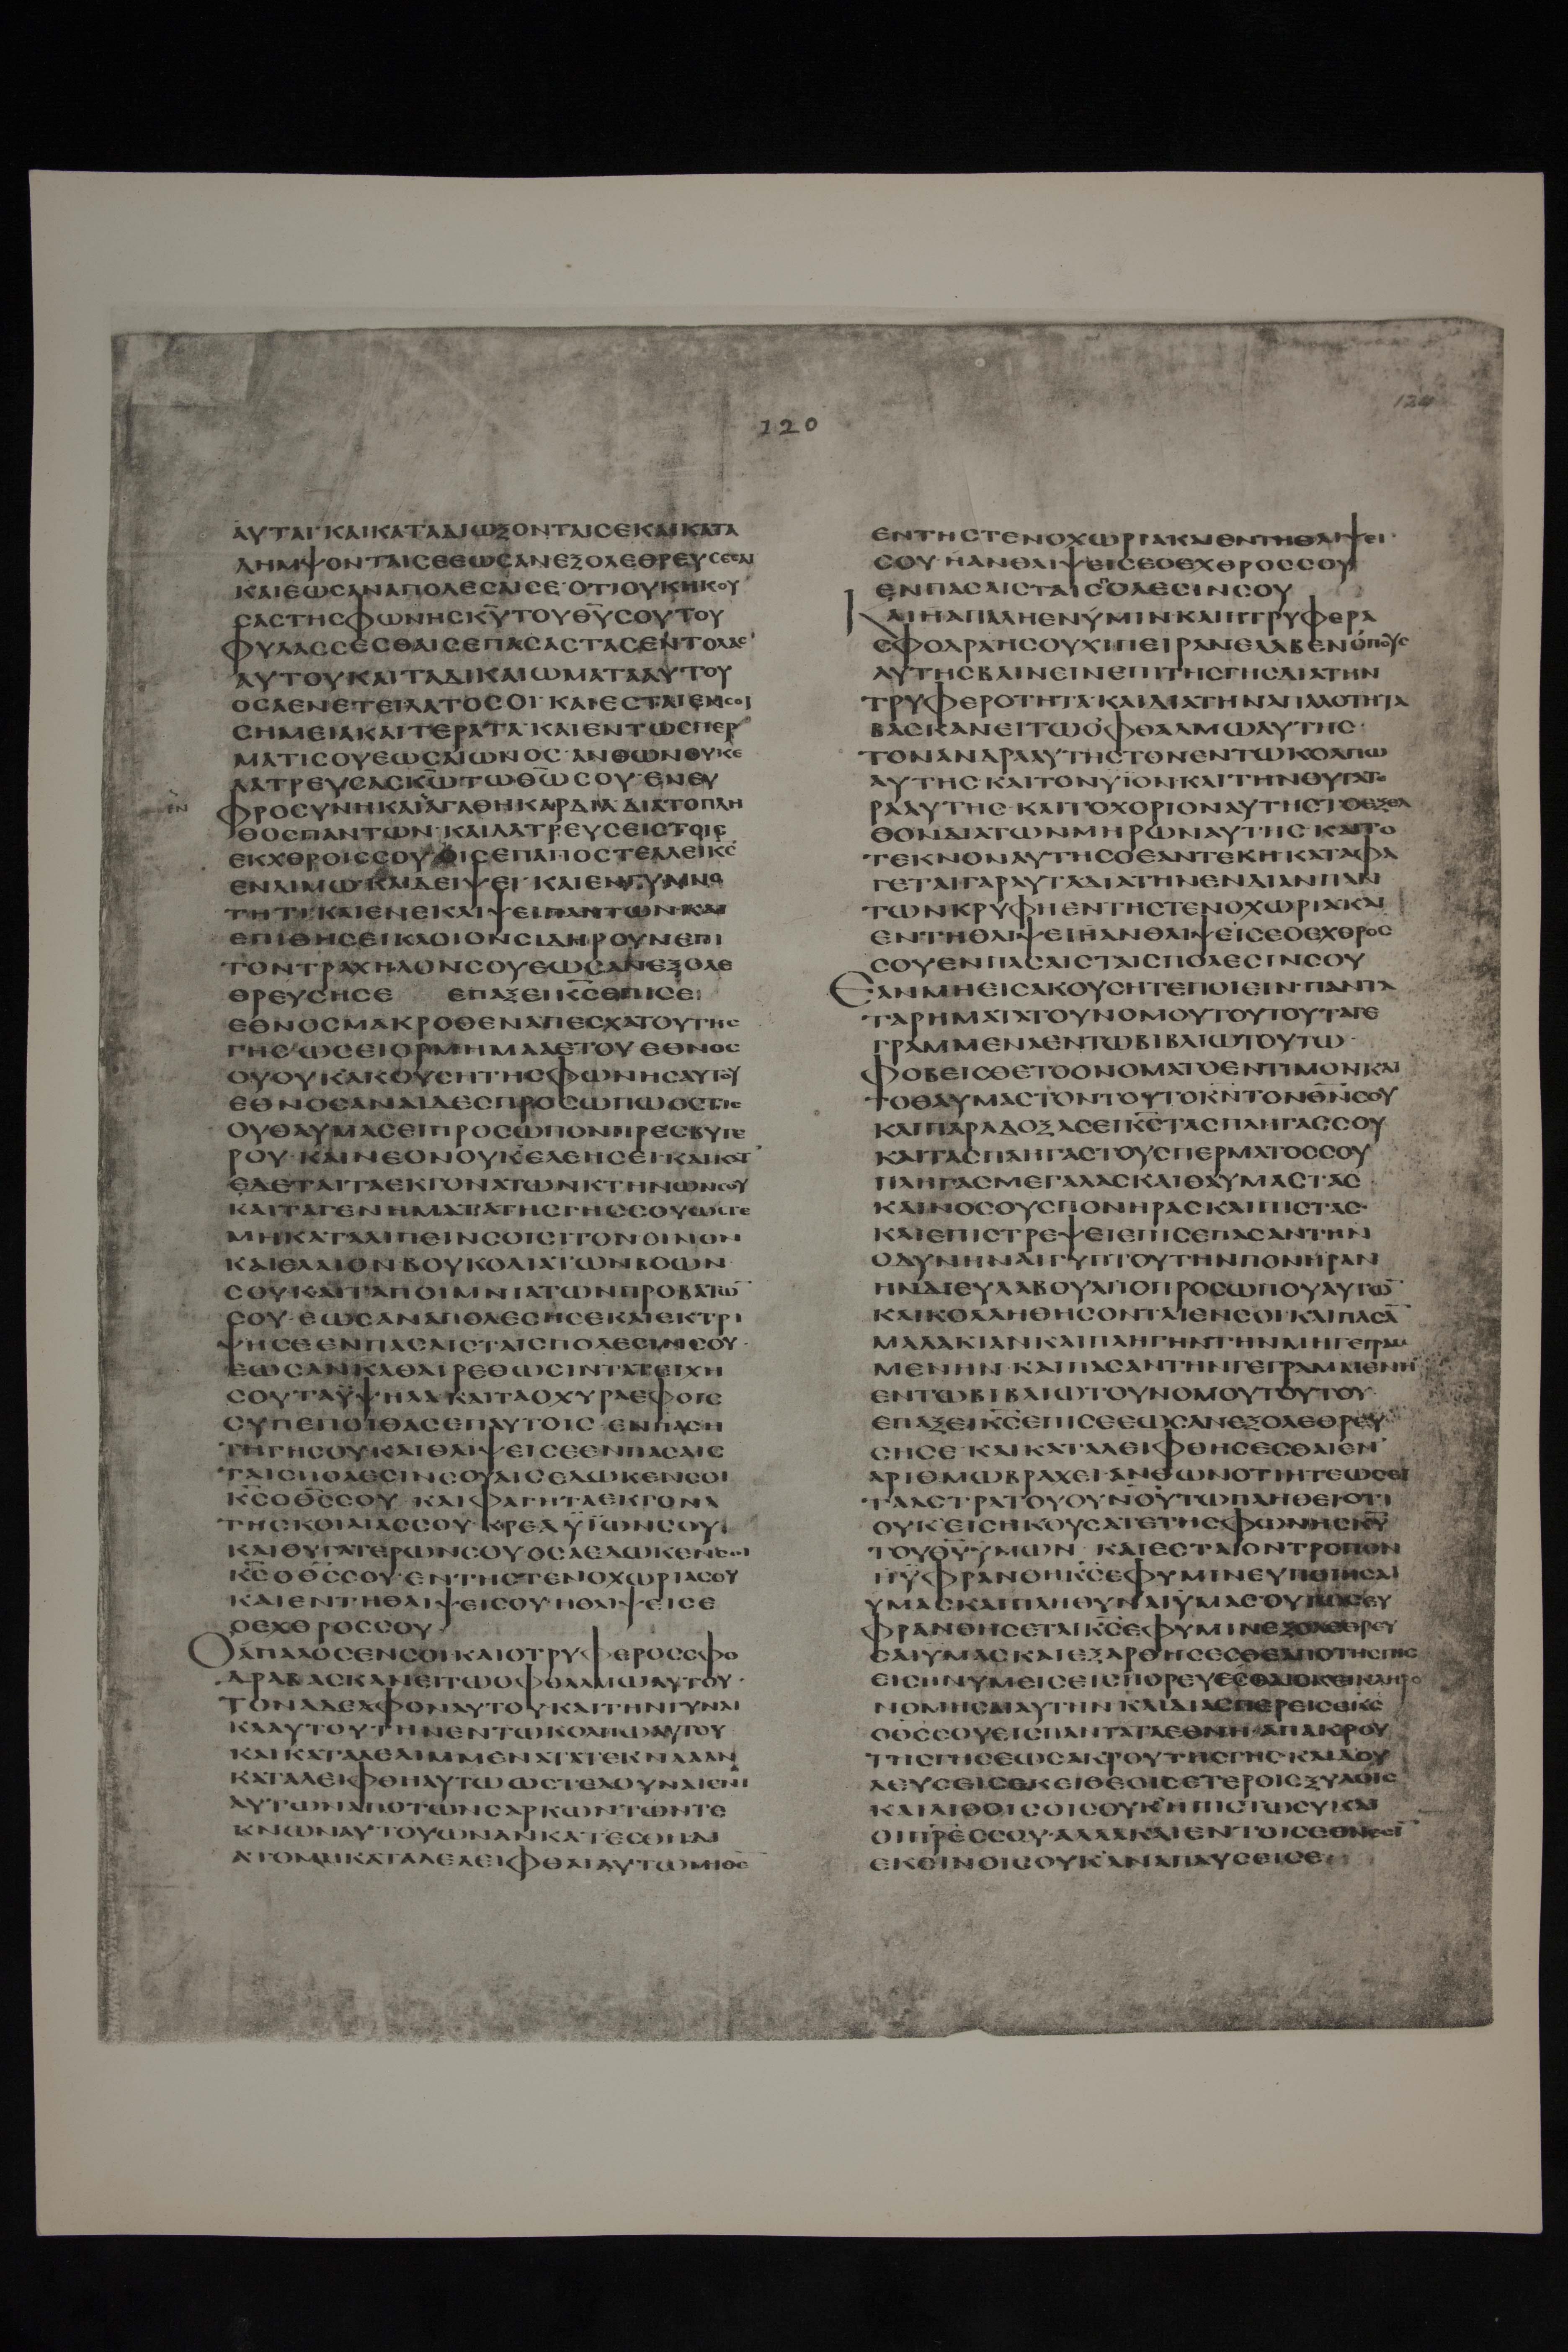 120
120
ΑΥΤΑΙ ΚΑΙΚΑΤΑΔΙΩΞΟΝΤΑΙСΕΚΑΙΚΑΤΑ
ΛΗΜΨΟΝΤΑΙСΕΕΩСΑΝΕΞΟΛΕΘΡΕΥСΕСΑΙ
ΚΑΙΕΩСΑΝΑΠΟΛΕСΑΙСΕ·ΟΤΙΟΥΚΗΚΟΥ
СΑСΤΗСΦΩΝΗСΚΥ̅ΤΟΥΘΥ̅СΟΥΤΟΥ
ΦΥΛΑССΕСΘΑΙСΕΠΑСΑСΤΑСΕΝΤΟΛΑС
ΑΥΤΟΥΚΑΙΤΑΔΙΚΑΙΩΜΑΤΑΑΥΤΟΥ
ΟСΑΕΝΕΤΕΙΛΑΤΟСΟΙ·ΚΑΙΕСΤΑΙΕΝСΟΙ
СΗΜΕΙΑΚΑΙΤΕΡΑΤΑ·ΚΑΙΕΝΤΩСΠΕΡ
ΜΑΤΙСΟΥΕΩСΑΙΩΝΟС·ΑΝΘΩΝΟΥΚΕ
ΛΑΤΡΕΥСΑСΚΩ̅ΤΩΘΩ̅СΟΥ·ΕΝΕΥ
ΦΡΟСΥΝΗΚΑΙΑΓΑΘΗΚΑΡΔΙΑΔΙΑΤΟΠΛΗ
ΘΟСΠΑΝΤΩΝ·ΚΑΙΛΑΤΡΕΥСΕΙСΤΟΙС
ΕΚΧΘΡΟΙССΟΥ ΟΙСΕΠΑΠΟСΤΕΛΛΕΙΚС̅
ΕΝΛΙΜΩ·ΚΑΙΔΕΙΨΕΙ·ΚΑΙΕΝΓΥΜΝΟ
ΤΗΤΙ·ΚΑΙΕΝΕΚΛΙΨΕΙΠΑΝΤΩΝΚΑΙ
ΕΠΙΘΗСΕΙΚΛΟΙΟΝСΙΔΗΡΟΥΝΕΠΙ
ΤΟΝΤΡΑΧΗΛΟΝСΟΥΕΩСΑΝΕΞΟΛΕ
ΘΡΕΥСΗСΕ ΕΠΑΞΕΙΚС̅ΕΠΙСΕ
ΕΘΝΟСΜΑΚΡΟΘΕΝΑΠΕСΧΑΤΟΥΤΗС
ΓΗС·ΩСΕΙΟΡΜΗΜΑΑΕΤΟΥ ΕΘΝΟС
ΟΥΟΥΚΑΚΟΥСΗΤΗСΦΩΝΗСΑΥΤΟΥ
ΕΘΝΟСΑΝΑΙΔΕСΠΡΟСΩΠΩΟСΤΙС
ΟΥΘΑΥΜΑСΕΙΠΡΟСΩΠΟΝΠΡΕСΒΥΤΕ
ΡΟΥ·ΚΑΙΝΕΟΝΟΥΚΕΛΕΗСΕΙ·ΚΑΙΚΑΤ
ΕΔΕΤΑΙΤΑΕΚΓΟΝΑΤΩΝΚΤΗΝΩΝСΟΥ
ΚΑΙΤΑΓΕΝΗΜΑΤΑΤΗСΓΗССΟΥΩСΤΕ
ΜΗΚΑΤΑΛΙΠΕΙΝСΟΙСΙΤΟΝΟΙΝΟΝ
ΚΑΙΕΛΑΙΟΝΒΟΥΚΟΛΙΑΤΩΝΒΟΩΝ
СΟΥ·ΚΑΙΤΑΠΟΙΜΝΙΑΤΩΝΠΡΟΒΑΤΩ̅
СΟΥ·ΕΩСΑΝΑΠΟΛΕСΗСΕΚΑΙΕΚΤΡΙ
ΨΗСΕΕΝΠΑСΑΙСΤΑΙСΠΟΛΕСΙΝСΟΥ·
ΕΩСΑΝΚΑΘΑΙΡΕΘΩСΙΝΤΑΤΕΙΧΗ
СΟΥΤΑΫΨΗΛΑΚΑΙΤΑΟΧΥΡΑΕΦΟΙС
СΥΠΕΠΟΙΘΑСΕΠΑΥΤΟΙС·ΕΝΠΑСΗ
ΤΗΓΗСΟΥΚΑΙΘΛΙΨΕΙСΕΕΝΠΑСΑΙС
ΤΑΙСΠΟΛΕСΙΝСΟΥΑΙСΕΔΩΚΕΝСΟΙ
ΚС̅ΟΘС̅СΟΥ·ΚΑΙΦΑΓΗΤΑΕΚΓΟΝΑ
ΤΗСΚΟΙΛΙΑССΟΥ·ΚΡΕΑΫΪΩΝСΟΥ
ΚΑΙΘΥΓΑΤΕΡΩΝСΟΥΟСΑΕΔΩΚΕΝСΟΙ
ΚС̅ΟΘС̅СΟΥ·ΕΝΤΗСΤΕΝΟΧΩΡΙΑСΟΥ
ΚΑΙΕΝΤΗΘΛΙΨΕΙСΟΥ·ΗΘΛΙΨΕΙСΕ
ΟΕΧΘΡΟССΟΥ
ΟΑΠΑΛΟСΕΝСΟΙΚΑΙΟΤΡΥΦΕΡΟССΦΟ
ΔΡΑΒΑСΚΑΝΕΙΤΩΟΦΘΑΛΜΩΑΥΤΟΥ·
ΤΟΝΑΔΕΛΦΟΝΑΥΤΟΥΚΑΙΤΗΝΓΥΝΑΙ
ΚΑΑΥΤΟΥΤΗΝΕΝΤΩΚΟΛΠΩΑΥΤΟΥ
ΚΑΙΚΑΤΑΛΕΛΙΜΜΕΝΑΤΑΤΕΚΝΑΑΑΝ
ΚΑΤΑΛΕΙΦΘΗΑΥΤΩΩСΤΕΔΟΥΝΑΙΕΝΙ
ΑΥΤΩΝΑΠΟΤΩΝСΑΡΚΩΝΤΩΝΤΕ
ΚΝΩΝΑΥΤΟΥΩΝΑΝΚΑΤΕСΘΗΔΙ
ΑΤΟΜΗΚΑΤΑΛΕΛΕΙΦΘΑΙΑΥΤΩΜΗΘΕ̅
ΕΝΤΗСΤΕΝΟΧΩΡΙΑΚΑΙΕΝΤΗΘΛΙΨΕΙ·
СΟΥ·ΗΑΝΘΛΙΨΕΙСΕΟΕΧΘΡΟССΟΥ
ΕΝΠΑСΑΙСΤΑΙСΠΟΛΕСΙΝСΟΥ
ΚΑΙΗΑΠΑΛΗΕΝΥΜΙΝΚΑΙΗΤΡΥΦΕΡΑ
СΦΟΔΡΑΗСΟΥΧΙΠΕΙΡΑΝΕΛΑΒΕΝΟΠΟΥС
ΑΥΤΗСΒΑΙΝΕΙΝΕΠΙΤΗСΓΗСΔΙΑΤΗΝ
ΤΡΥΦΕΡΟΤΗΤΑ·ΚΑΙΔΙΑΤΗΝΑΠΑΛΟΤΗΤΑ
ΒΑСΚΑΝΕΙΤΩΟΦΘΑΛΜΩΑΥΤΗС·
ΤΟΝΑΝΔΡΑΑΥΤΗСΤΟΝΕΝΤΩΚΟΛΠΩ
ΑΥΤΗСΚΑΙΤΟΝΥΪΟΝΚΑΙΤΗΝΘΥΓΑΤΕ
ΡΑΑΥΤΗС·ΚΑΙΤΟΧΟΡΙΟΝΑΥΤΗСΤΟΕΞΕΛ
ΘΟΝΔΙΑΤΩΝΜΗΡΩΝΑΥΤΗС·ΚΑΙΤΟ
ΤΕΚΝΟΝΑΥΤΗСΟΕΑΝΤΕΚΗ·ΚΑΤΑΦΑ
ΓΕΤΑΙΓΑΡΑΥΤΑΔΙΑΤΗΝΕΝΔΙΑΝΠΑΝ
ΤΩΝΚΡΥΦΗΕΝΤΗСΤΕΝΟΧΩΡΙΑΚΑΙ
ΕΝΤΗΘΛΙΨΕΙΗΑΝΘΛΙΨΕΙСΕΟΕΧΘΡΟС
СΟΥΕΝΠΑСΑΙСΤΑΙСΠΟΛΕСΙΝСΟΥ
ΕΑΝΜΗΕΙСΑΚΟΥСΗΤΕΠΟΙΕΙΝ·ΠΑΝΤΑ
ΤΑΡΗΜΑΤΑΤΟΥΝΟΜΟΥΤΟΥΤΟΥΤΑΓΕ
ΓΡΑΜΜΕΝΑΕΝΤΩΒΙΒΛΙΩΤΟΥΤΩ·
ΦΟΒΕΙСΘΕΤΟΟΝΟΜΑΤΟΕΝΤΙΜΟΝΚΑΙ
ΤΟΘΑΥΜΑСΤΟΝΤΟΥΤΟΚΝ̅ΤΟΝΘΝ̅СΟΥ
ΚΑΙΠΑΡΑΔΟΞΑСΕΙΚС̅ΤΑСΠΛΗΓΑССΟΥ
ΚΑΙΤΑСΠΛΗΓΑСΤΟΥСΠΕΡΜΑΤΟССΟΥ
ΠΛΗΓΑСΜΕΓΑΛΑСΚΑΙΘΑΥΜΑСΤΑС·
ΚΑΙΝΟСΟΥСΠΟΝΗΡΑСΚΑΙΠΙСΤΑС·
ΚΑΙΕΠΙСΤΡΕΨΕΙΕΠΙСΕΠΑСΑΝΤΗΝ
ΟΔΥΝΗΝΑΙΓΥΠΤΟΥΤΗΝΠΟΝΗΡΑΝ
ΗΝΔΙΕΥΛΑΒΟΥΑΠΟΠΡΟСΩΠΟΥΑΥΤΩ̅
ΚΑΙΚΟΛΛΗΘΗСΟΝΤΑΙΕΝСΟΙ·ΚΑΙΠΑСΑ̅
ΜΑΛΑΚΙΑΝΚΑΙΠΛΗΓΗΝΤΗΝΜΗΓΕΓΡΑΜ
ΜΕΝΗΝ·ΚΑΙΠΑСΑΝΤΗΝΓΕΓΡΑΜΜΕΝΗ̅
ΕΝΤΩΒΙΒΛΙΩΤΟΥΝΟΜΟΥΤΟΥΤΟΥ·
ΕΠΑΞΕΙΚС̅ΕΠΙСΕΕΩСΑΝΕΞΟΛΕΘΡΕΥ
СΗСΕ·ΚΑΙΚΑΤΑΛΕΙΦΘΗСΕСΘΑΙΕΝ
ΑΡΙΘΜΩΒΡΑΧΕΙ·ΑΝΘΩΝΟΤΙΗΤΕΩСΕΙ
ΤΑΑСΤΡΑΤΟΥΟΥΝΟΥΤΩΠΛΗΘΕΙ·ΟΤΙ
ΟΥΚΕΙСΗΚΟΥСΑΤΕΤΗСΦΩΝΗСΚΥ̅
ΤΟΥΘΥ̅ΥΜΩΝ ΚΑΙΕСΤΑΙΟΝΤΡΟΠΟΝ
ΗΥΦΡΑΝΘΗΚС̅ΕΦΥΜΙΝΕΥΠΟΙΗСΑΙ
ΥΜΑСΚΑΙΠΛΗΘΥΝΑΙΥΜΑСΟΥΤΩСΕΥ
ΦΡΑΝΘΗСΕΤΑΙΚС̅ΕΦΥΜΙΝΕΞΟΛΕΘΡΕΥ
СΑΙΥΜΑСΚΑΙΕΞΑΡΘΗСΕСΘΕΑΠΟΤΗСΓΗС
ΕΙСΗΝΥΜΕΙСΕΙСΠΟΡΕΥΕСΘΑΙΕΚΕΙΚΛΗΡΟ
ΝΟΜΗСΑΙΑΥΤΗΝ·ΚΑΙΔΙΑСΠΕΡΕΙСΕΚС̅
ΟΘС̅СΟΥΕΙСΠΑΝΤΑΤΑΕΘΝΗ·ΑΠΑΚΡΟΥ
ΤΗСΓΗСΕΩСΑΚΡΟΥΤΗСΓΗС·ΚΑΙΔΟΥ
ΛΕΥСΕΙСΕΚΕΙΘΕΟΙСΕΤΕΡΟΙСΞΥΛΟΙС
ΚΑΙΛΙΘΟΙСΟΙСΟΥΚΗΠΙСΤΩСΥΚΑΙ
ΟΙΠΡΕССΟΥ·ΑΛΛΑΚΑΙΕΝΤΟΙСΕΘΝΕСΙ̅
ΕΚΕΙΝΟΙСΟΥΚΑΝΑΠΑΥСΕΙСΕ